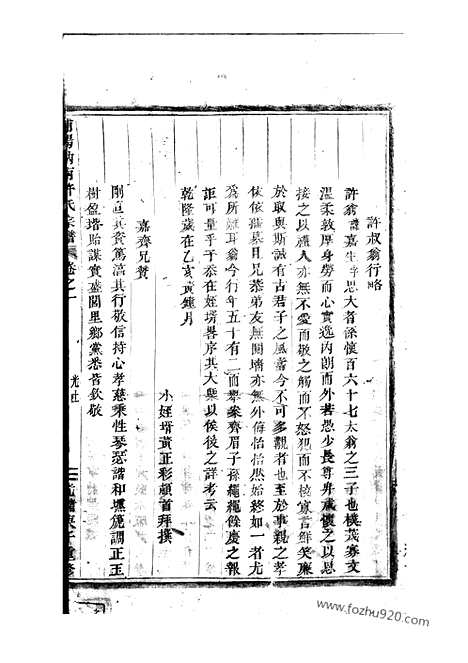 許叔翁行略
許翁諱嘉生字思大者係懷百六十七太翁之三子也樸茂寡文
溫柔敦厚身勞而心實逸內朗而外若愚少長尊卑咸懷之以恩
接之以禮人亦無不愛而敬之觸而不怒犯而不校寡言鮮笑廉
於取與斯誠有古君子之風當今不可多覯者也至於事親之孝
依依孺慕且兄恭弟友無鬩墻亦無外侮怡怡然始終如一者尤
爲所難耳翁今行年五十有二而舉案齊眉子孫繩繩餘慶之報
詎可量乎于忝在姪壻畧序其大槩以俟後之詳考云
乾隆歲在乙亥黃鐘月
小姪壻黃正彩頓首拜撰
嘉齊兄贊
剛直其資篤滴其行敬信持心孝慈秉性琴瑟諧和塤箎調正玉
樹盈堦貽謀實盛閭里鄉黨悉皆欽敬
許氏宗譜 卷之一
www.fozhu920.com